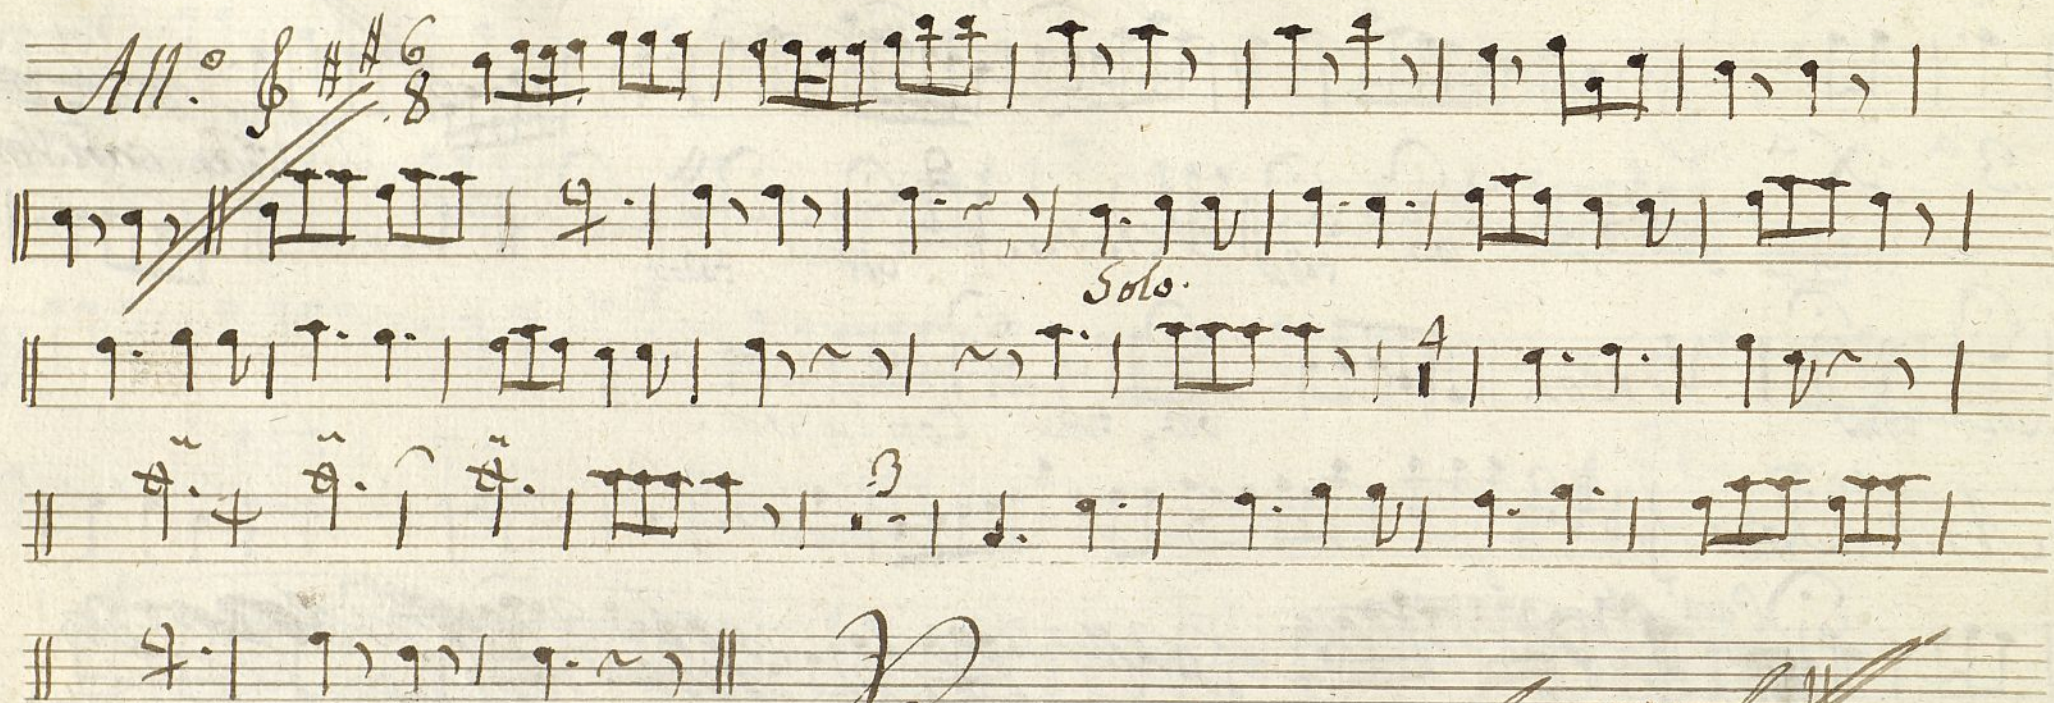 All.o 6 8
Solo.
4
3